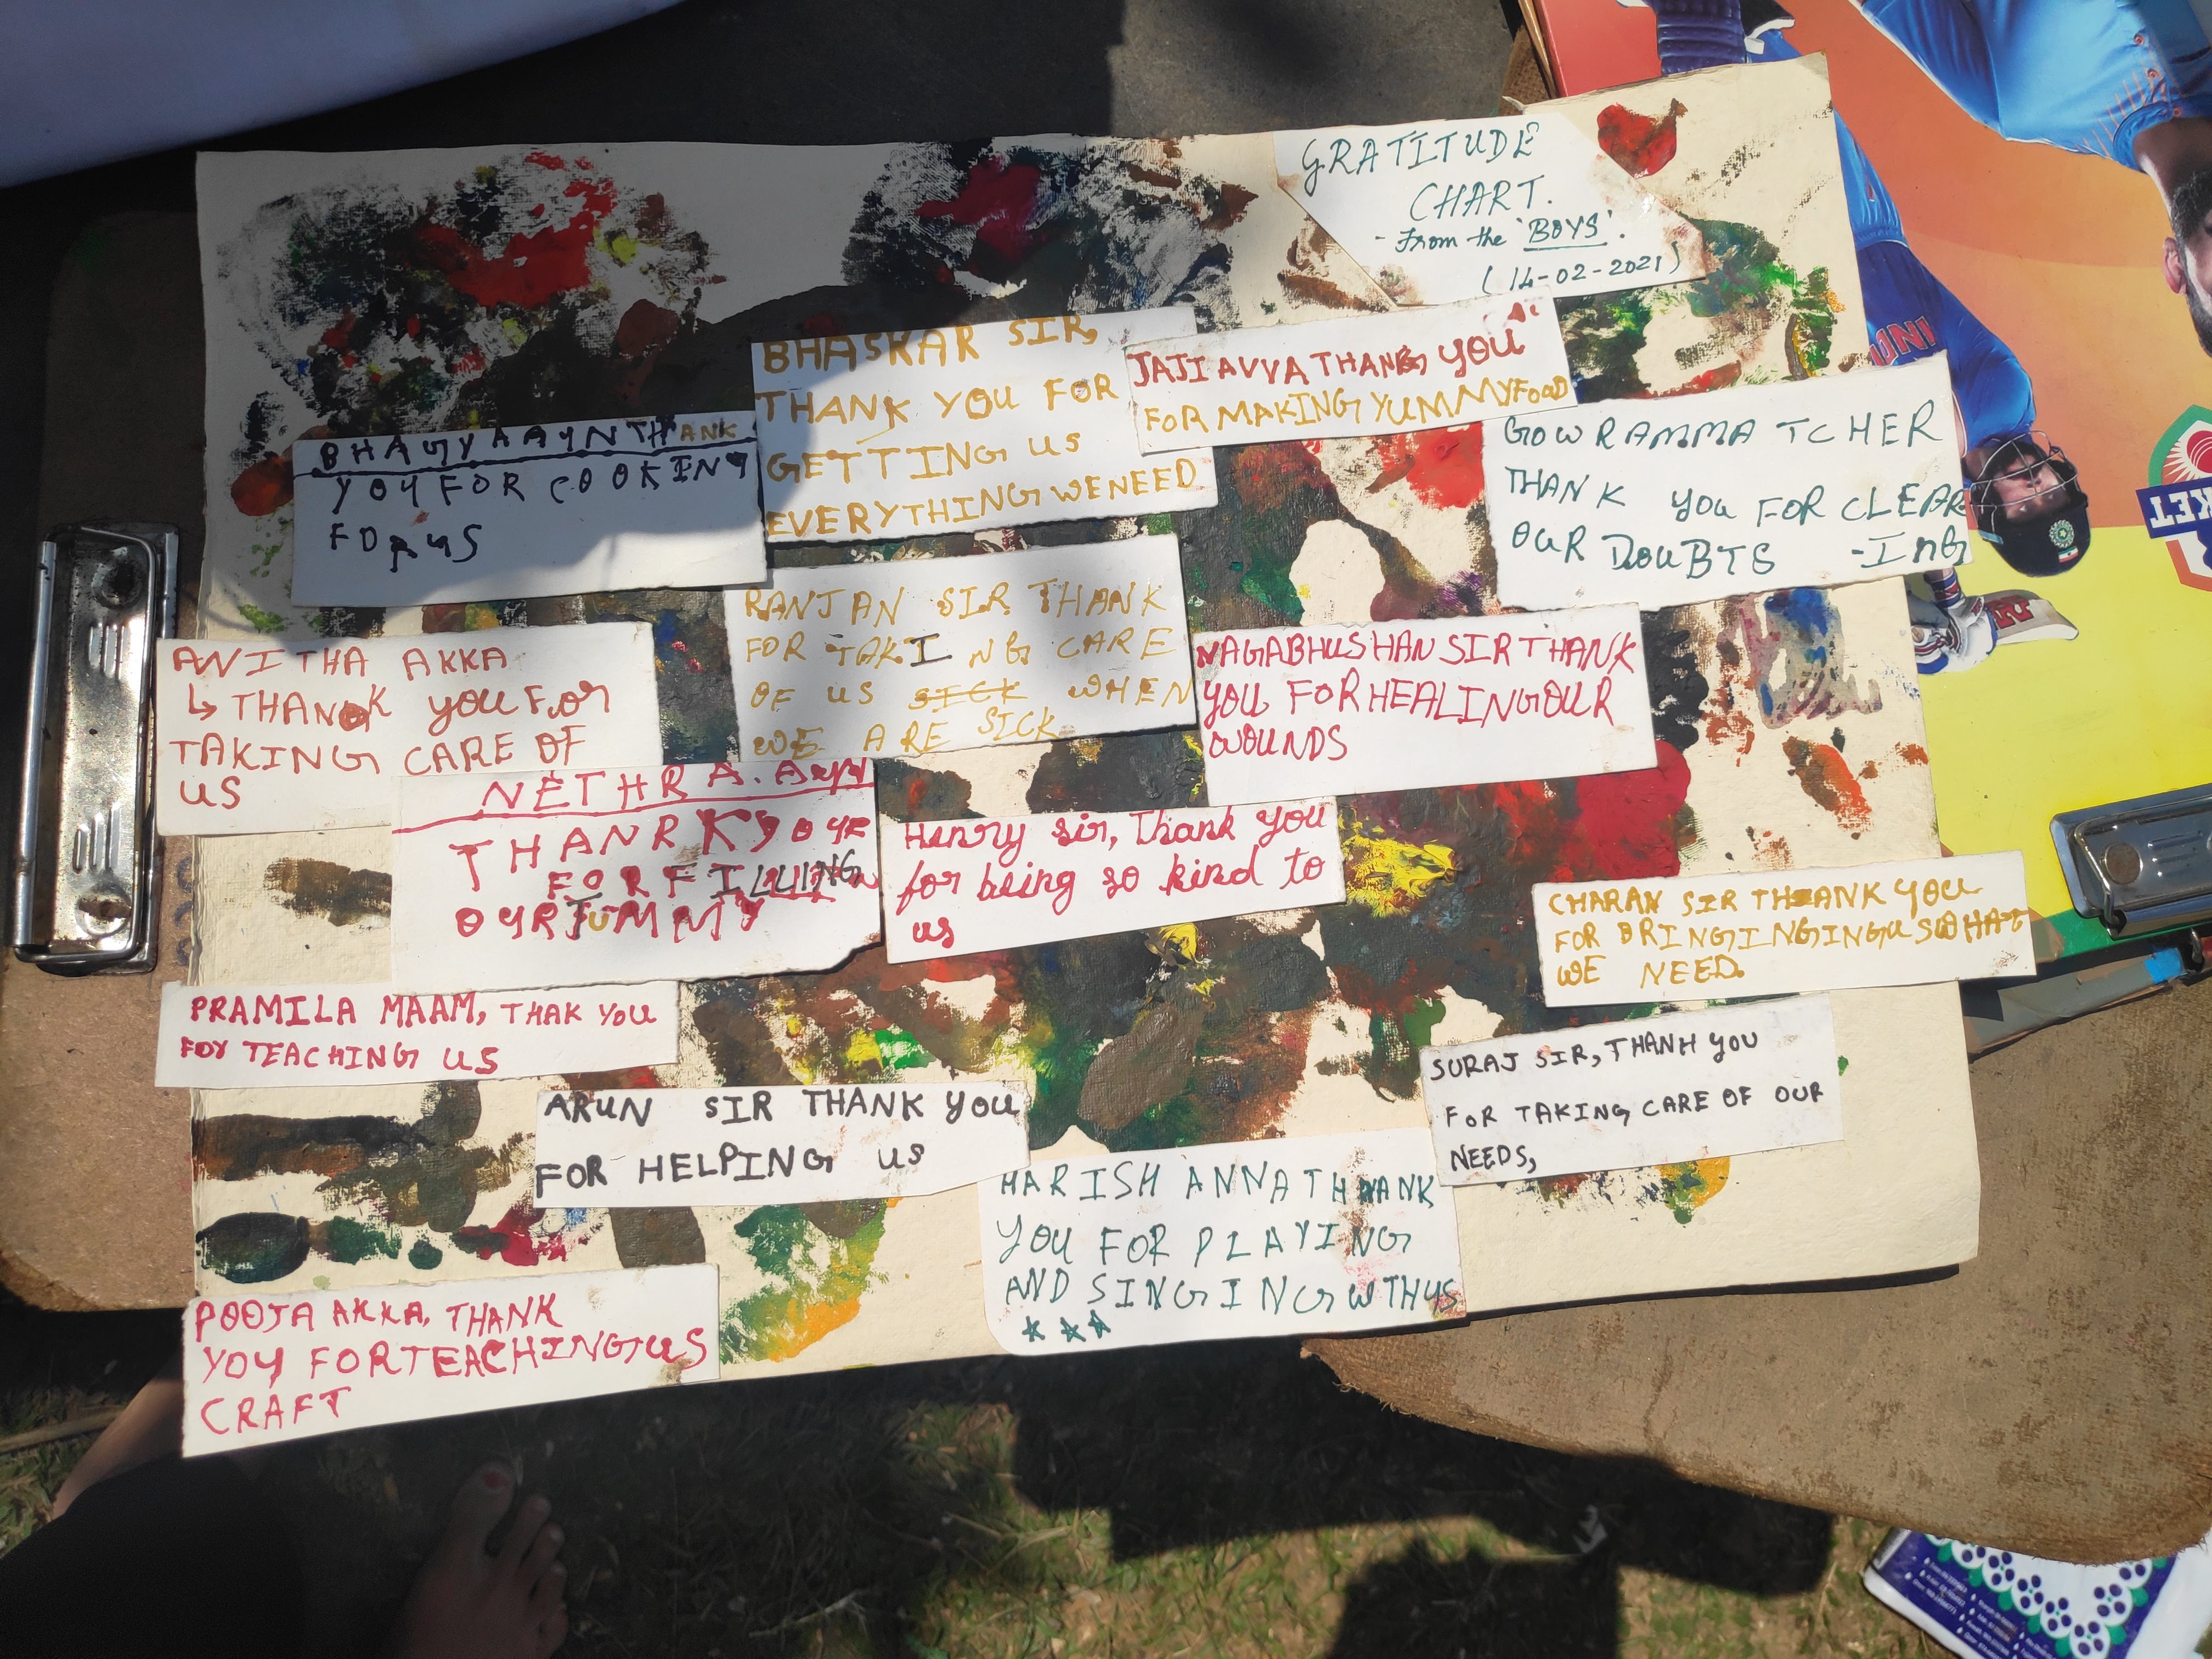 GRATITUDE
CHART.
- From the 'BOYS'.
(14-02-2021)
BHASKAR SIR,
THANK YOU FOR
GETTING US
EVERYTHING WE NEED
JAJI AVVA THANK YOU
FOR MAKING YUMMY FOOD
BHAGYAAYN THANK
YOY FOR COOKING
FOR US
GOWRAMMA TCHER
THANK YOU FOR CLEAR
OUR DOUBTS -ING
RANJAN SIR THANK
FOR TAKING CARE
OF US SICK WHEN
WE ARE SICK
ANITHA AKKA
↳ THANK YOU FOR
TAKING CARE OF
US
NAGABHUSHAN SIR THANK
YOU FOR HEALING OUR
WOUNDS
NETHRA.
THANRK YOY
FOR FILLING
OYR TUMMY
Henry sir, Thank you
for being so kind to
us
CHARAN SIR THANK YOU
FOR BRINGINGING US WHAT
WE NEED.
PRAMILA MAAM, THAK YOU
FOR TEACHING US
SURAJ SIR, THANH YOU
FOR TAKING CARE OF OUR
NEEDS,
ARUN SIR THANK YOU
FOR HELPING US
HARISH ANNA THANK
YOU FOR PLAYING
AND SINGING WTH YS
POOJA AKKA, THANK
YOY FOR TEACHING US
CRAFT